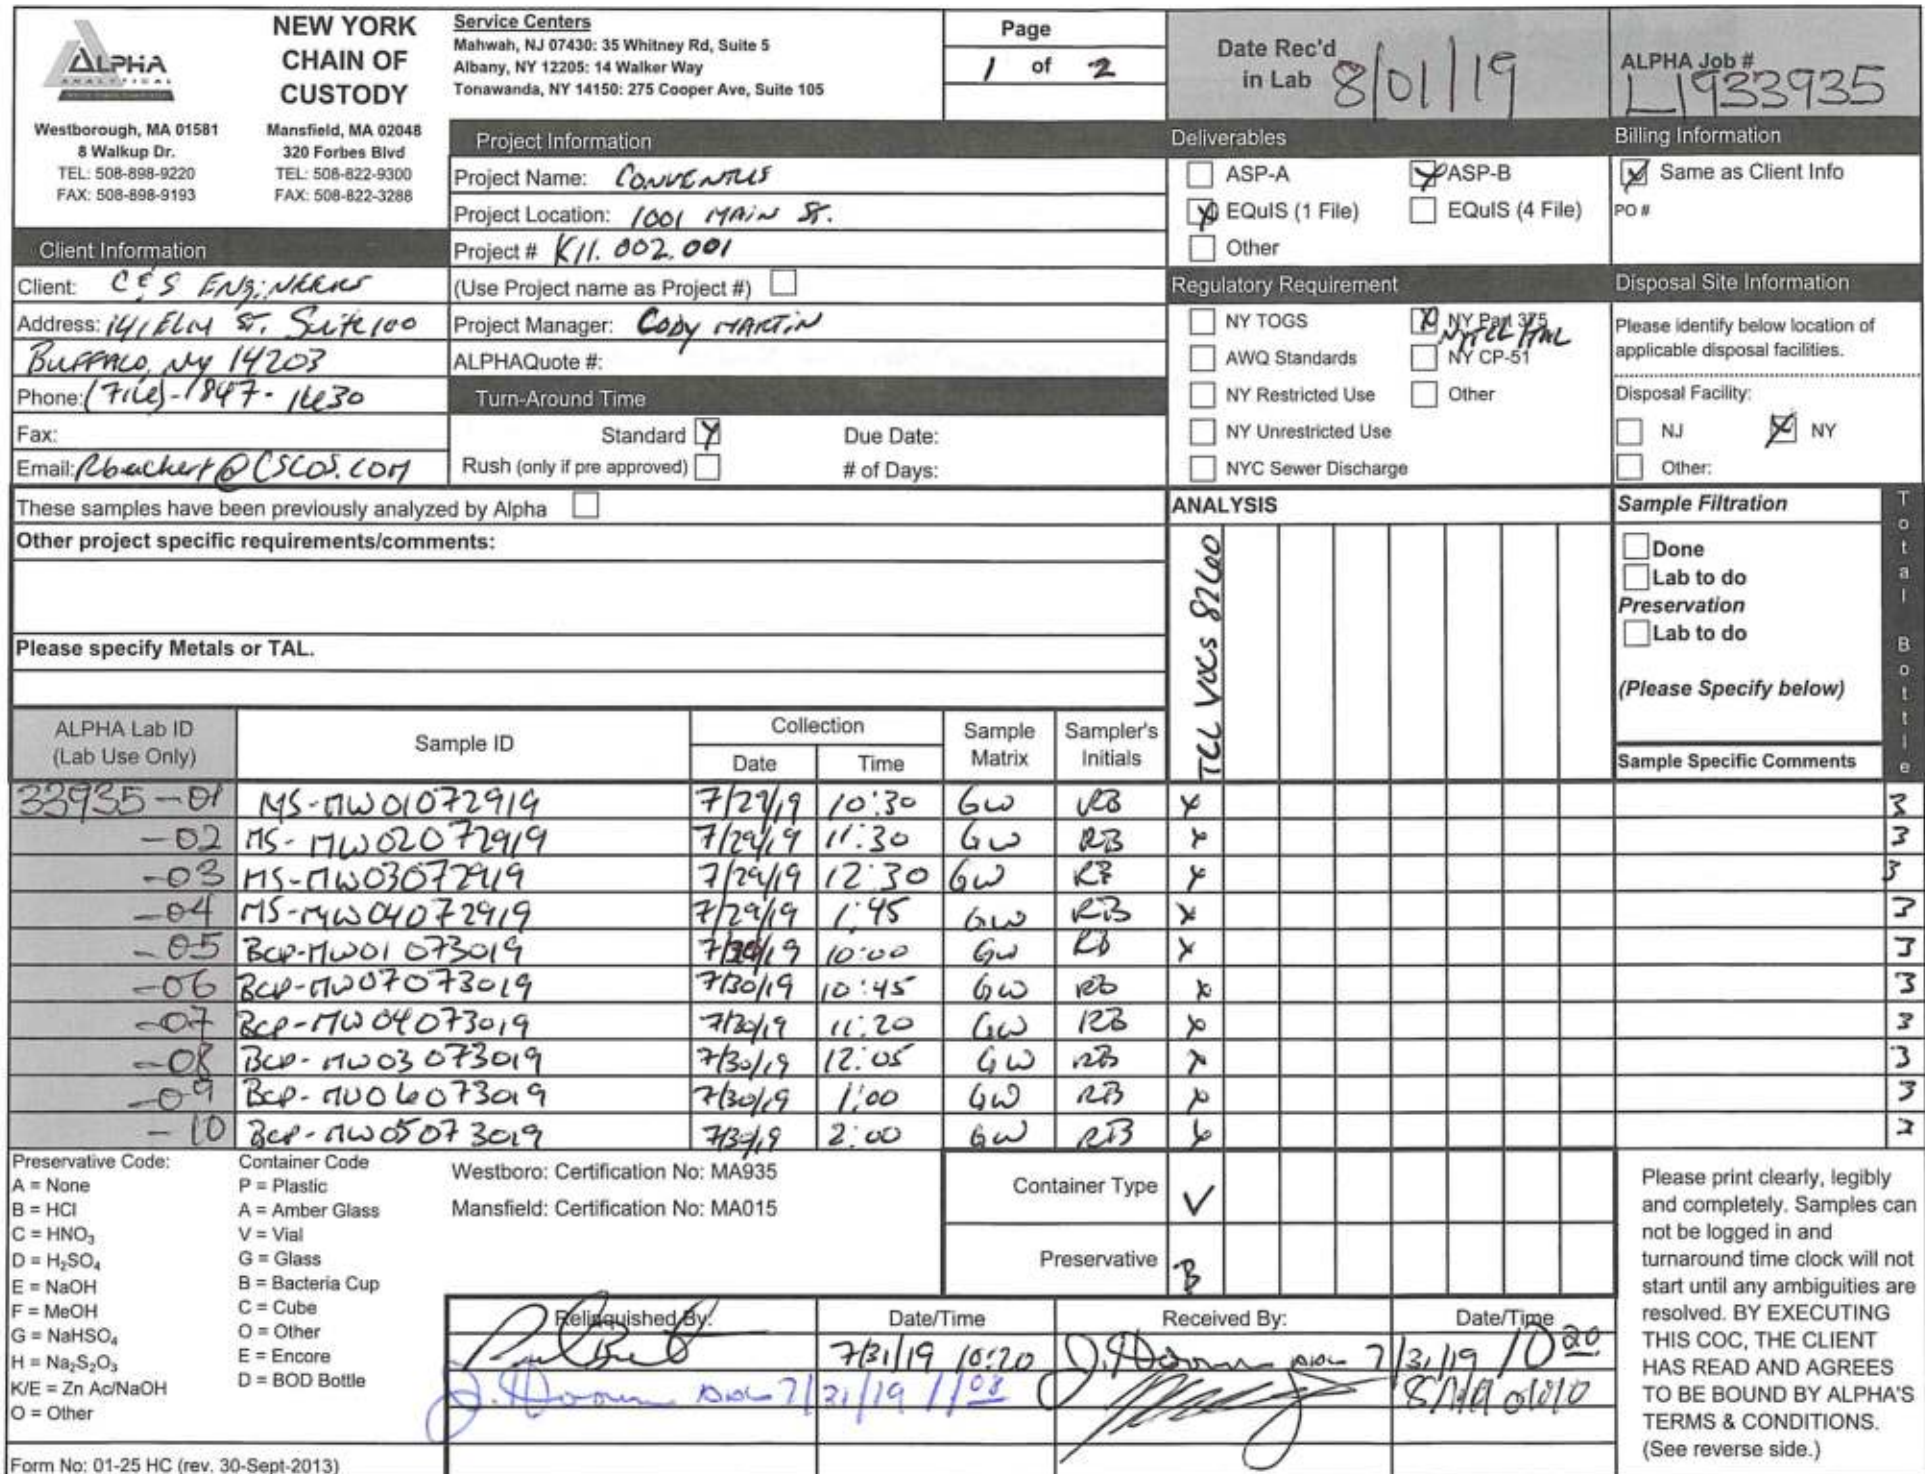 ALPHA
ANALYTICAL
NEW YORK
CHAIN OF
CUSTODY
Westborough, MA 01581
8 Walkup Dr.
TEL: 508-898-9220
FAX: 508-898-9193
Mansfield, MA 02048
320 Forbes Blvd
TEL: 508-822-9300
FAX: 508-822-3288
Service Centers
Mahwah, NJ 07430: 35 Whitney Rd, Suite 5
Albany, NY 12205: 14 Walker Way
Tonawanda, NY 14150: 275 Cooper Ave, Suite 105
Page
1 of 2
Date Rec'd
in Lab 8/01/19
ALPHA Job #
L1933935
Client Information
Client: C&S Engineers
Address: 141 Elm St. Suite 100
Buffalo, NY 14203
Phone: (716)-847-1630
Fax:
Email: Rbachert@CSCOS.COM
Project Information
Project Name: CONVENTUS
Project Location: 1001 MAIN St.
Project # K11.002.001
(Use Project name as Project #)
Project Manager: Cody MARTIN
ALPHAQuote #:
Turn-Around Time
Standard X Due Date:
Rush (only if pre approved) # of Days:
Deliverables
ASP-A X ASP-B
X EQuIS (1 File) EQuIS (4 File)
Other
Regulatory Requirement
NY TOGS X NY Part 375
AWQ Standards NY CP-51
NY Restricted Use Other
NY Unrestricted Use
NYC Sewer Discharge
Billing Information
X Same as Client Info
PO #
Disposal Site Information
Please identify below location of
applicable disposal facilities.
Disposal Facility:
NJ X NY
Other:
These samples have been previously analyzed by Alpha
Other project specific requirements/comments:
Please specify Metals or TAL.
ANALYSIS
TCL VOCs 8260
Sample Filtration
Done
Lab to do
Preservation
Lab to do
(Please Specify below)
Total Bottle
ALPHA Lab ID
(Lab Use Only)
Sample ID
Collection
Date Time
Sample
Matrix
Sampler's
Initials
Sample Specific Comments
33935-01 MS-MW01072919 7/29/19 10:30 GW RB X 3
-02 MS-MW02072919 7/29/19 11:30 GW RB X 3
-03 MS-MW03072919 7/29/19 12:30 GW RB X 3
-04 MS-MW04072919 7/29/19 1:45 GW RB X 3
-05 BCP-MW01073019 7/30/19 10:00 GW RB X 3
-06 BCP-MW07073019 7/30/19 10:45 GW RB X 3
-07 BCP-MW04073019 7/30/19 11:20 GW RB X 3
-08 BCP-MW03073019 7/30/19 12:05 GW RB X 3
-09 BCP-MW06073019 7/30/19 1:00 GW RB X 3
-10 BCP-MW05073019 7/30/19 2:00 GW RB X 3
Preservative Code:
A = None
B = HCl
C = HNO3
D = H2SO4
E = NaOH
F = MeOH
G = NaHSO4
H = Na2S2O3
K/E = Zn Ac/NaOH
O = Other
Container Code
P = Plastic
A = Amber Glass
V = Vial
G = Glass
B = Bacteria Cup
C = Cube
O = Other
E = Encore
D = BOD Bottle
Westboro: Certification No: MA935
Mansfield: Certification No: MA015
Container Type V
Preservative B
Relinquished By: Date/Time Received By: Date/Time
7/31/19 10:20 7/31/19 10 20
7/31/19
Please print clearly, legibly
and completely. Samples can
not be logged in and
turnaround time clock will not
start until any ambiguities are
resolved. BY EXECUTING
THIS COC, THE CLIENT
HAS READ AND AGREES
TO BE BOUND BY ALPHA'S
TERMS & CONDITIONS.
(See reverse side.)
Form No: 01-25 HC (rev. 30-Sept-2013)